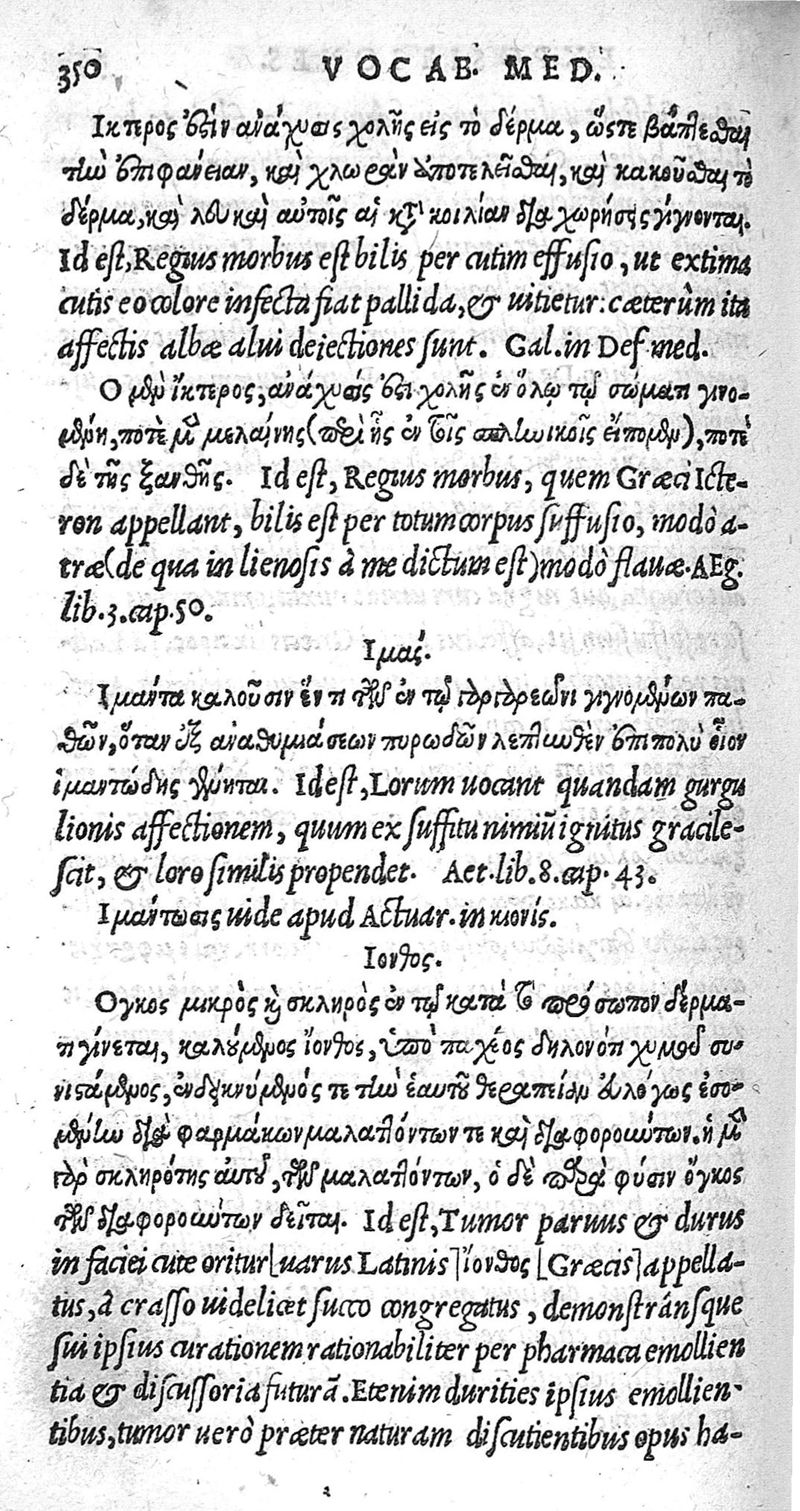 350 VOCAB. MED.
Ικτερος ἐστὶν ἀνάχυσις χολῆς εἰς τὸ δέρμα, ὥστε βάπτεσθαι
τὴν ἐπιφάνειαν, καὶ χλωρὰν ἀποτελεῖσθαι, καὶ κακοῦσθαι τὸ
δέρμα, καὶ λευκαὶ αὐτοῖς αἱ κατὰ κοιλίαν διαχωρήσεις γίγνονται.
Id est, Regius morbus est bilis per cutim effusio, ut extima
cutis eo colore infecta fiat pallida, & uitietur: cæterûm ita
affectis albæ alui deiectiones sunt. Gal. in Def. med.
Ο μὲν ἴκτερος, ἀνάχυσίς ἐστι χολῆς ἐν ὅλῳ τῷ σώματι γινο-
μένη, ποτὲ μὲν μελαίνης (περὶ ἧς ἐν τοῖς σπληνικοῖς εἴπομεν), ποτὲ
δὲ τῆς ξανθῆς. Id est, Regius morbus, quem Græci Icte-
ron appellant, bilis est per totum corpus suffusio, modò a-
træ (de qua in lienosis à me dictum est) modò flauæ. AEg.
lib. 3. cap. 50.
Ιμάς.
Ιμάντα καλοῦσιν ἕν τι τῶν ἐν τῷ γαργαρεῶνι γιγνομένων πα-
θῶν, ὅταν ἐξ ἀναθυμιάσεων πυρωδῶν λεπτυνθὲν ἐπιπολὺ οἷον
ἱμαντώδης γένηται. Id est, Lorum uocant quandam gurgu
lionis affectionem, quum ex suffitu nimiũ ignitus gracile-
scit, & loro similis propendet. Aet. lib. 8. cap. 43.
Ιμάντωσις uide apud Actuar. in κιονίς.
Ιονθος.
Ογκος μικρὸς κỳ σκληρὸς ἐν τῷ κατὰ τὸ πρόσωπον δέρμα-
τι γίνεται, καλούμενος ἴονθος, ὑπὸ παχέος δηλονότι χυμοῦ συ-
νιστάμενος, ἐνδεικνύμενός τε τὴν ἑαυτοῦ θεραπείαν εὐλόγως ἐσο-
μένην διὰ φαρμάκων μαλαττόντων τε καὶ διαφορούντων. ἡ μὲν
γὰρ σκληρότης αὐτοῦ, τῶν μαλαττόντων, ὁ δὲ παρὰ φύσιν ὄγκος
τῶν διαφορούντων δεῖται. Id est, Tumor paruus & durus
in faciei cute oritur [uarus Latinis] ἴονθος [Græcis] appella-
tus, à crasso uidelicet succo congregatus, demonstránsque
sui ipsius curationem rationabiliter per pharmaca emollien
tia & discussoria futurã. Etenim durities ipsius emollien-
tibus, tumor uerò præter naturam discutientibus opus ha-